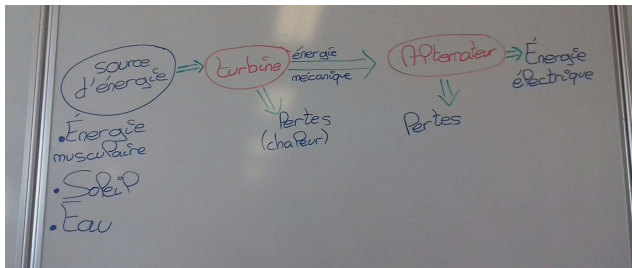 source
d'énergie
turbine
énergie
mécanique
Alternateur
Énergie
électrique
Pertes
(chaleur)
Pertes
• Énergie
musculaire
• Soleil
• Eau